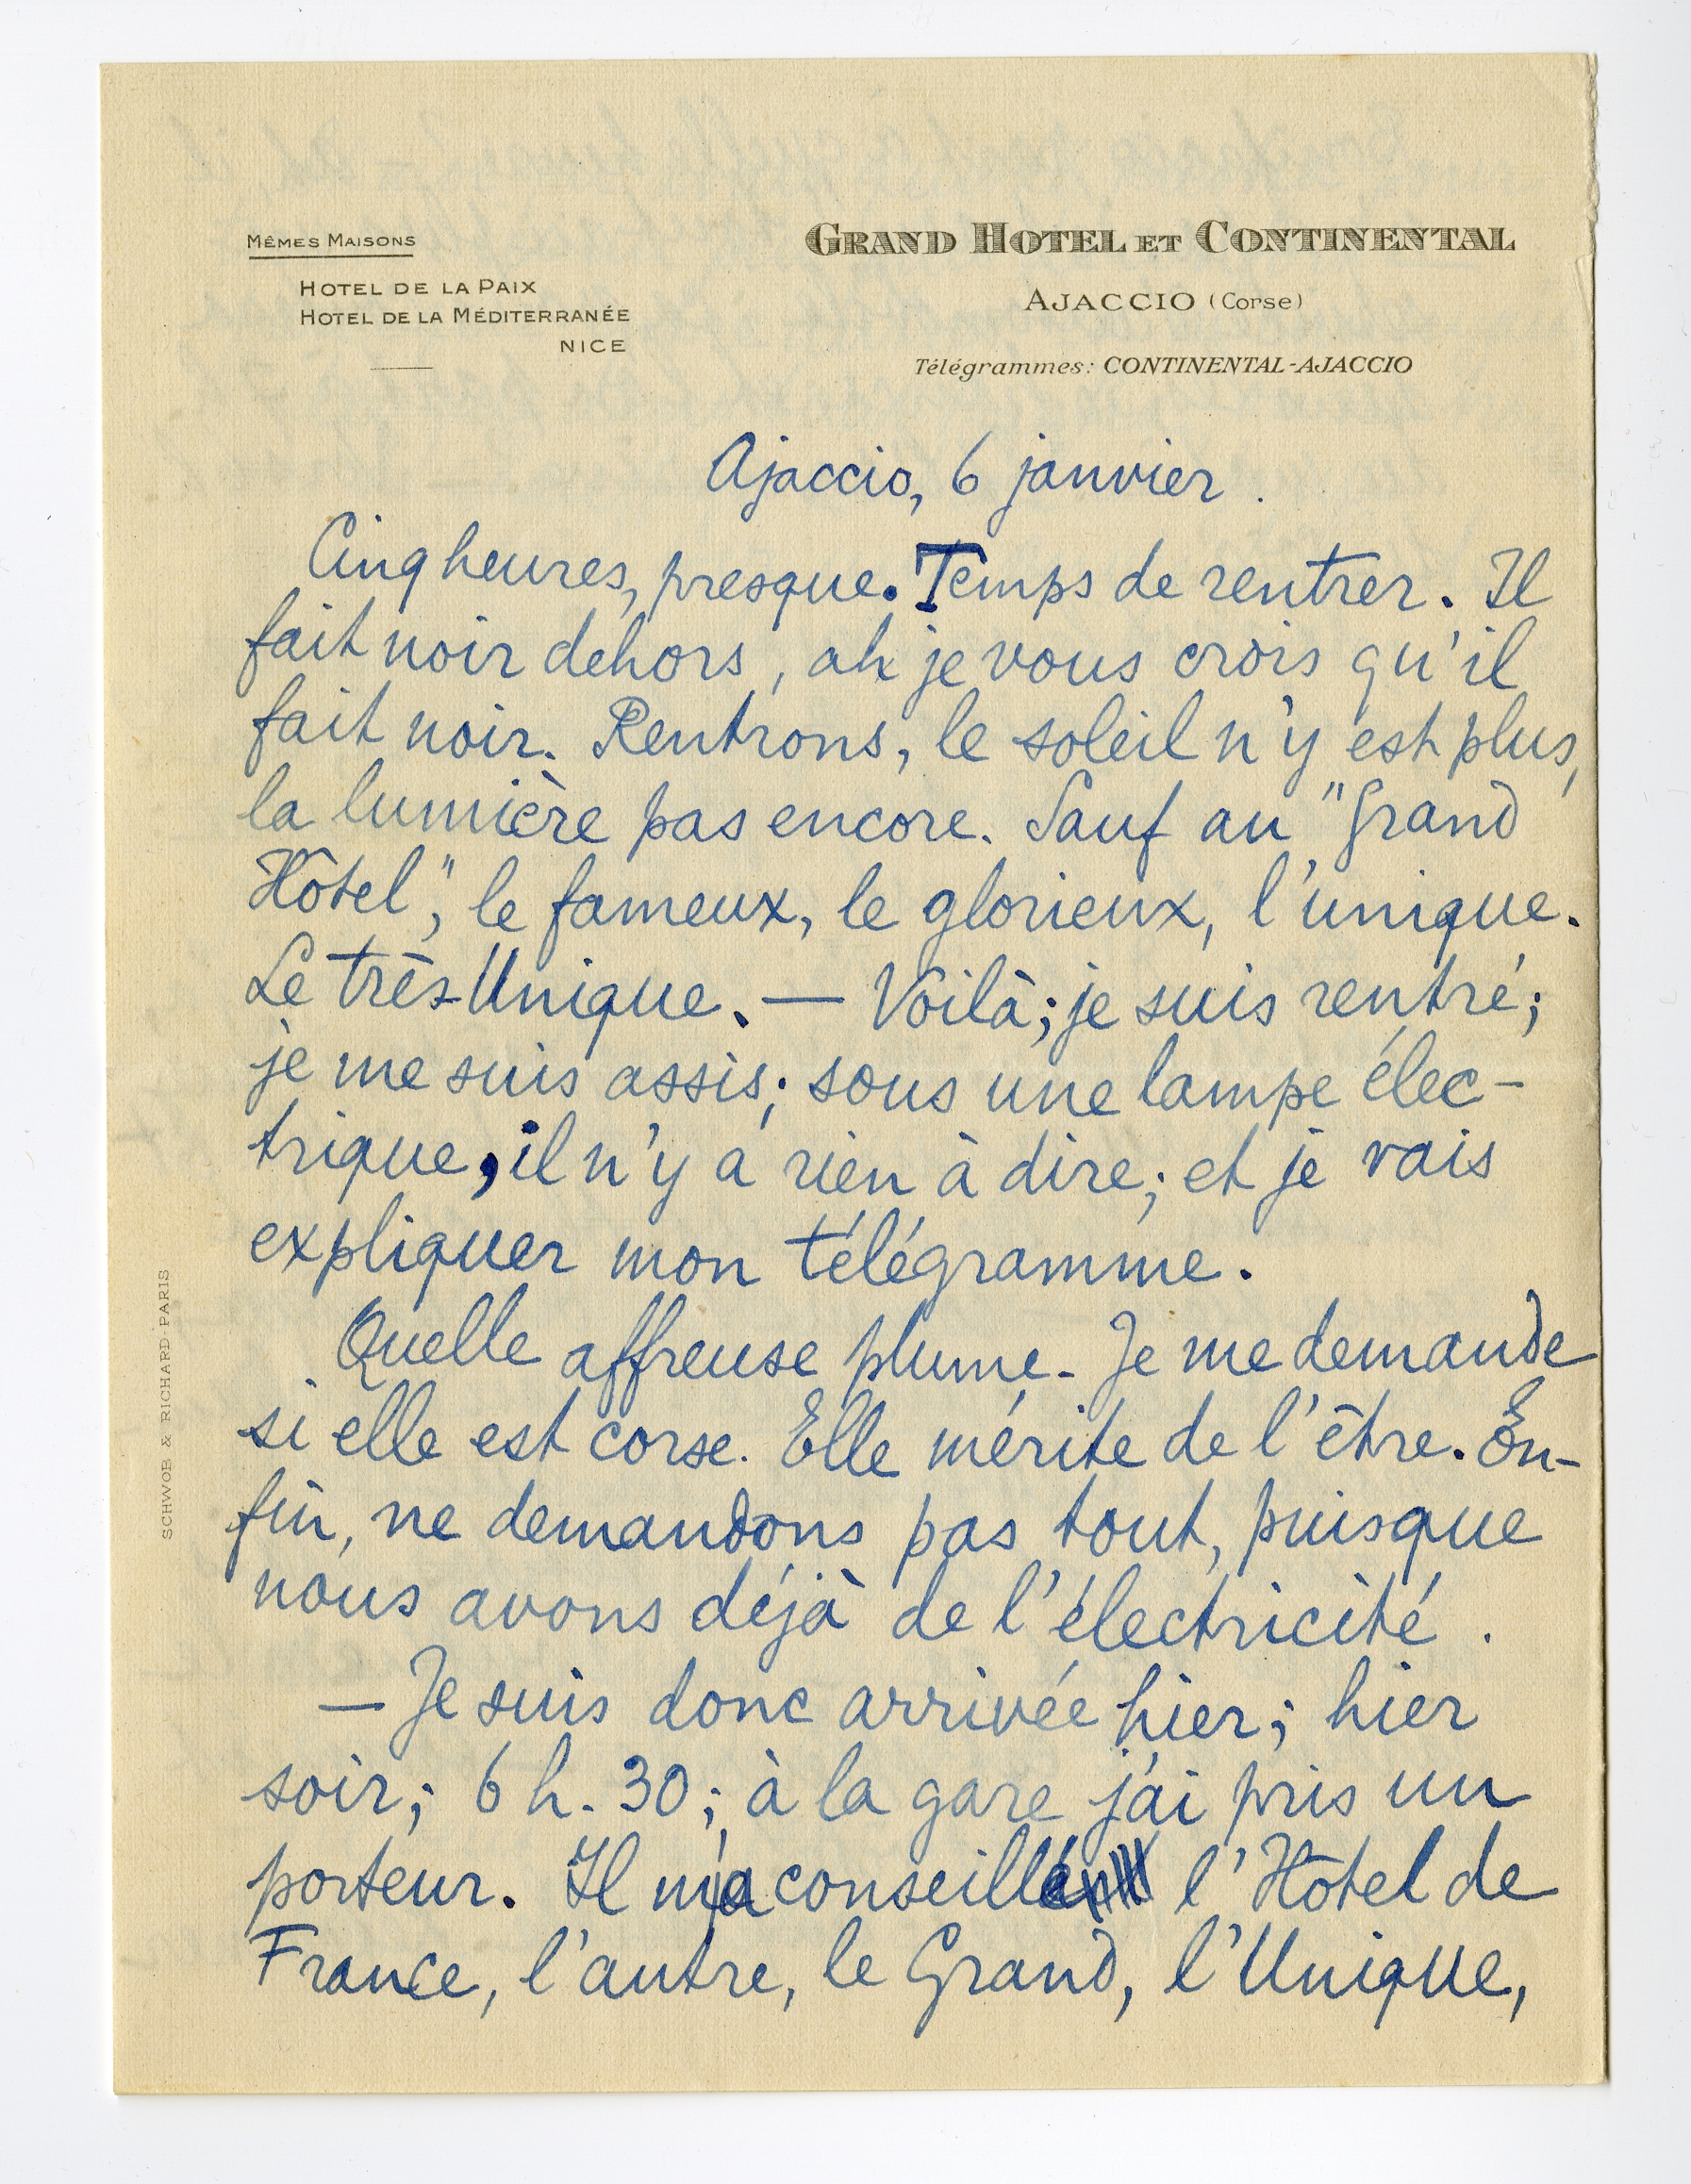 MÊMES MAISONS
HOTEL DE LA PAIX
HOTEL DE LA MÉDITERRANÉE
NICE
GRAND HOTEL ET CONTINENTAL
AJACCIO (Corse)
Télégrammes: CONTINENTAL-AJACCIO
Ajaccio, 6 janvier.
Cinq heures, presque. Temps de rentrer. Il
fait noir dehors, ah je vous crois qu'il
fait noir. Rentrons, le soleil n'y est plus,
la lumière pas encore. Sauf au "Grand
Hôtel", le fameux, le glorieux, l'unique.
Le très-Unique. — Voilà; je suis rentré;
je me suis assis; sous une lampe élec-
trique, il n'y a rien à dire; et je vais
expliquer mon télégramme.
Quelle affreuse plume. Je me demande
si elle est corse. Elle mérite de l'être. En-
fin, ne demandons pas tout, puisque
nous avons déjà de l'électricité.
— Je suis donc arrivée hier; hier
soir; 6 h. 30; à la gare j'ai pris un
porteur. Il m'a conseillé l'Hôtel de
France, l'autre, le Grand, l'Unique,
SCHWOB & RICHARD PARIS